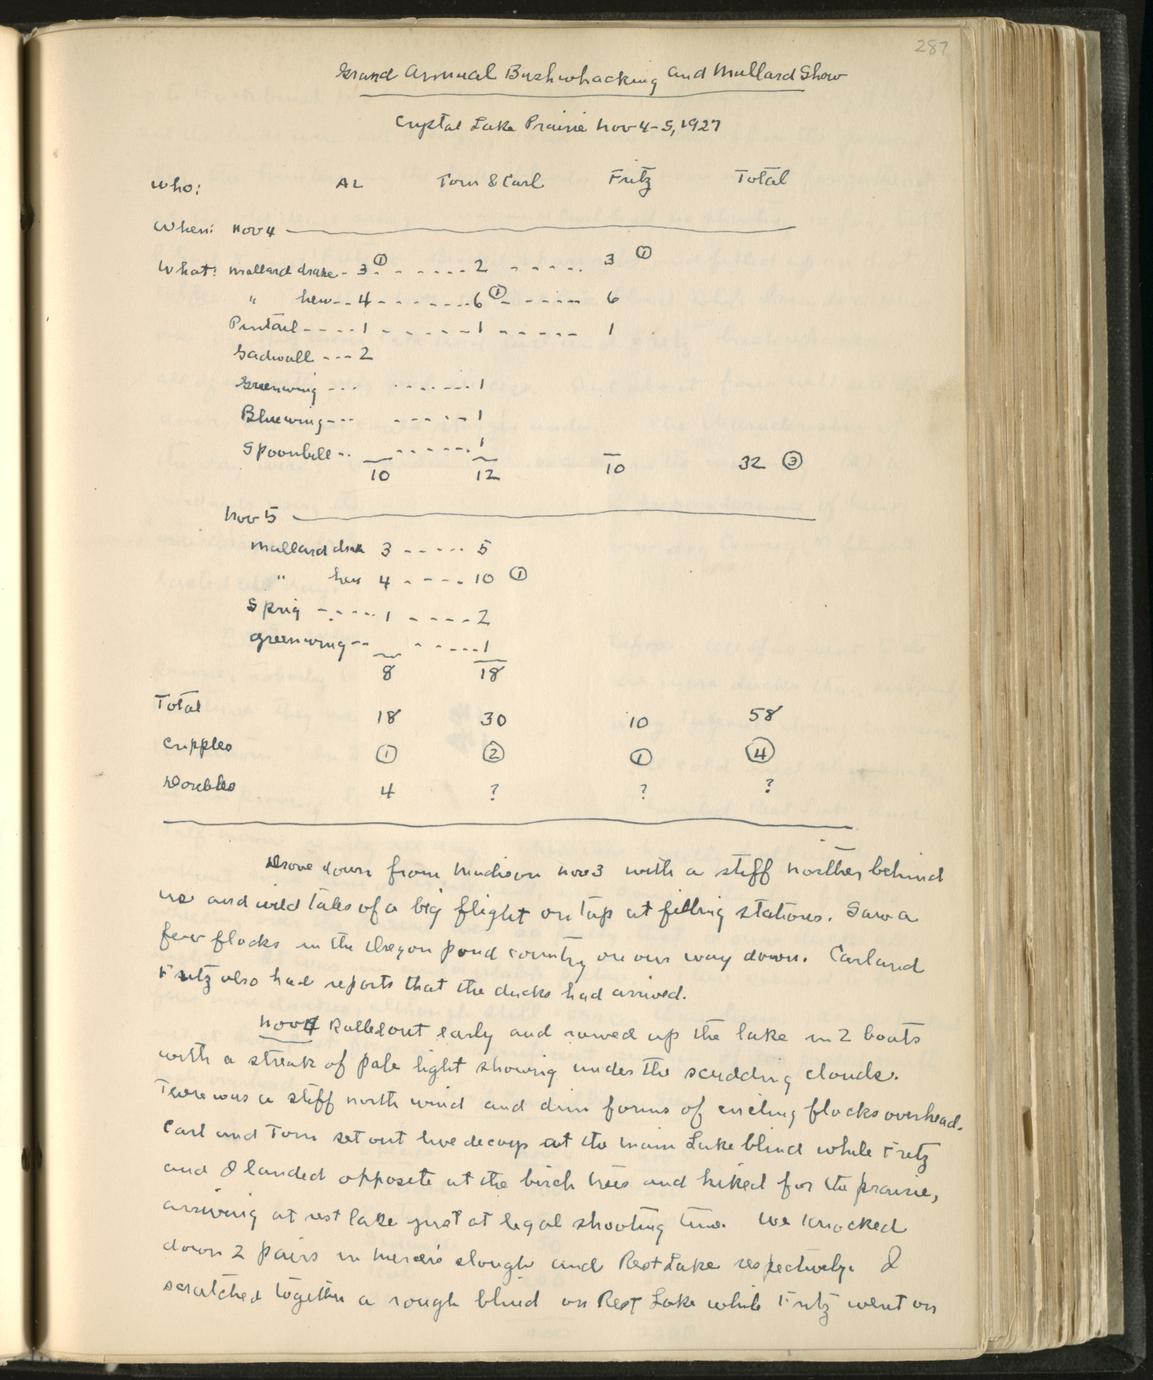 287
Grand Annual Bushwhacking and Mallard Show
Crystal Lake Prairie Nov 4-5, 1927
Who: AL Tom & Carl Fritz Total
When: Nov 4
What: Mallard drake - 3 ① - - - - - - 2 - - - - - 3 ①
" hen - - 4 - - - - - - - 6 ① - - - - - 6
Pintail - - - - 1 - - - - - - - 1 - - - - - - 1
Gadwall - - - 2
Greenwing - - - - - - - - - 1
Bluewing - - - - - - - - 1
Spoonbill - - - - - - - - 1
10 12 10 32 ③
Nov 5
Mallard drake 3 - - - - - 5
" hen 4 - - - - 10 ①
Sprig - - - - - 1 - - - - - 2
greenwing - - - - - - - - 1
8 18
Total 18 30 10 58
Cripples ① ② ① ④
Doubles 4 ? ? ?
Drove down from Madison Nov 3 with a stiff norther behind
us and wild tales of a big flight on tap at filling stations. Saw a
few flocks in the Oregon pond country on our way down. Carl and
Fritz also had reports that the ducks had arrived.
Nov 4 Rolled out early and rowed up the lake in 2 boats
with a streak of pale light showing under the scudding clouds.
There was a stiff north wind and dim forms of circling flocks overhead.
Carl and Tom set out live decoys at the main Lake blind while Fritz
and I landed opposite at the birch trees and hiked for the prairie,
arriving at rest lake just at legal shooting time. We knocked
down 2 pairs in slough and Rest Lake respectively. I
scratched together a rough blind on Rest Lake while Fritz went on